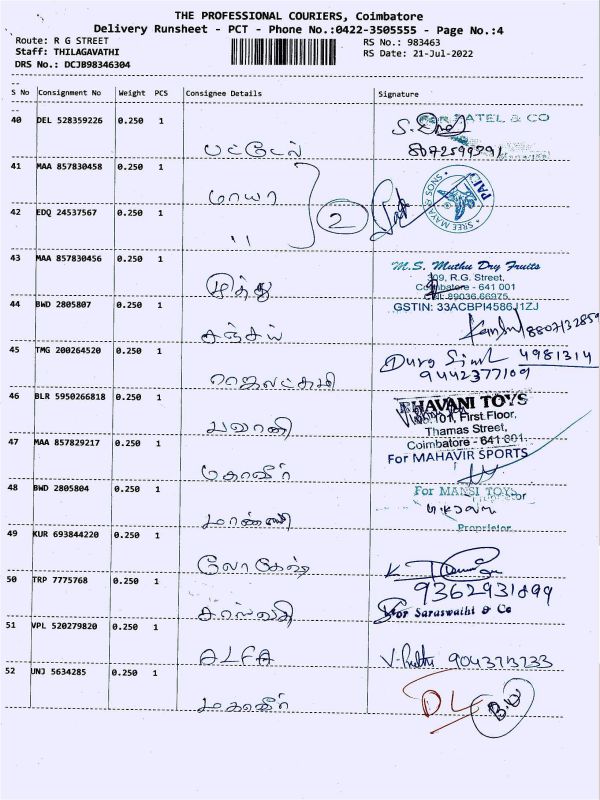 THE PROFESSIONAL COURIERS, Coimbatore
Delivery Runsheet - PCT - Phone No.:0422-3505555 - Page No.:4
Route: R G STREET
RS No.: 983463
Staff: THILAGAVATHI
RS Date: 21-Jul-2022
DRS No.: DCJB98346304
S No Consignment No Weight PCS Consignee Details Signature
40 DEL 528359226 0.250 1
பட்டேல்
FOR PATEL & CO
8072599391
41 MAA 857830458 0.250 1
மாயா
SREE MAYA & SONS
PAID
42 EDQ 24537567 0.250 1
" 2
43 MAA 857830456 0.250 1
முத்து
M.S. Muthu Dry Fruits
309, R.G. Street,
Coimbatore - 641 001
Cell: 89036 66975
GSTIN: 33ACBPI4586J1ZJ
44 BWD 2805807 0.250 1
சஞ்சய்
8807132859
45 TMG 200264520 0.250 1
ராஜலட்சுமி
4981314
9442377109
46 BLR 5950266818 0.250 1
பவானி
BHAVANI TOYS
No.101, First Floor,
Thamas Street,
Coimbatore - 641 001.
47 MAA 857829217 0.250 1
மகாவீர்
For MAHAVIR SPORTS
Proprietor
48 BWD 2805804 0.250 1
மான்ஸி
For MANSI TOYS
Proprietor
49 KUR 693844220 0.250 1
லோகேஷ்
50 TRP 7775768 0.250 1
சரஸ்வதி
9362931899
For Saraswathi & Co
51 VPL 520279820 0.250 1
ALFA
9043713233
52 UNJ 5634285 0.250 1
மகாவீர்
DL